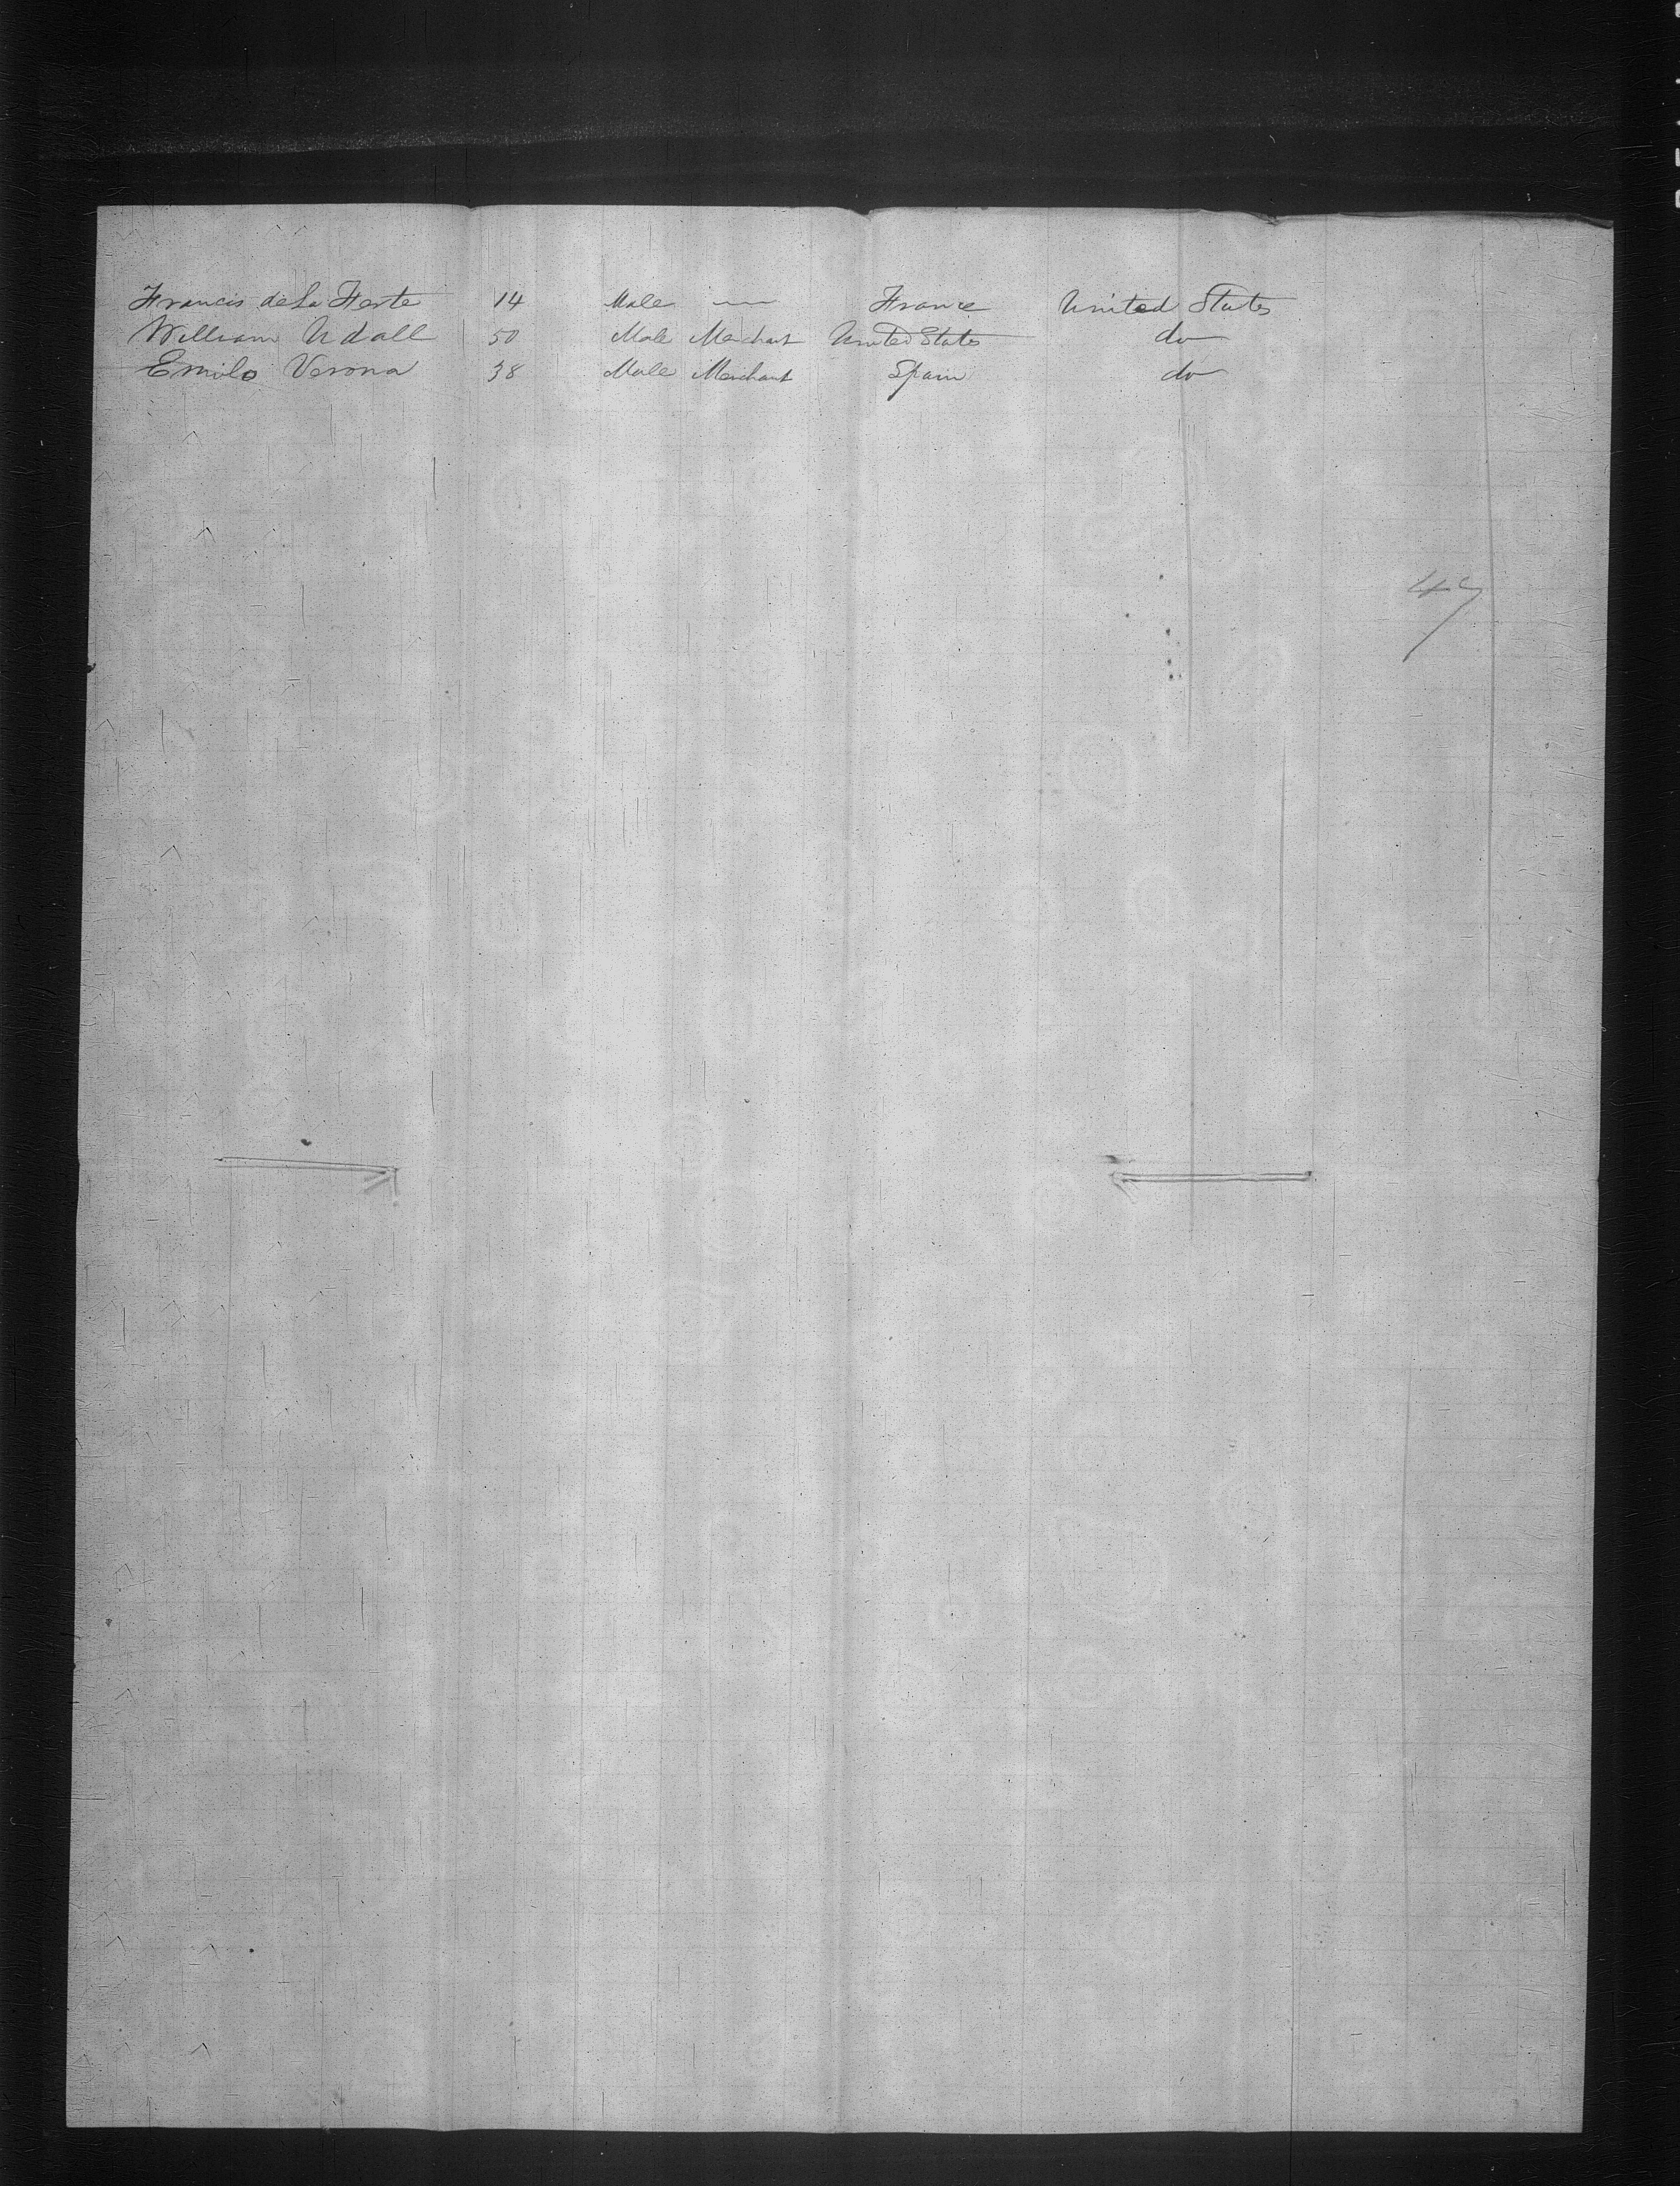 Francis de La Ferte 14 Male — France United States
William Udall 50 Male Merchant United States do
Emilo Verona 38 Male Merchant Spain do
47